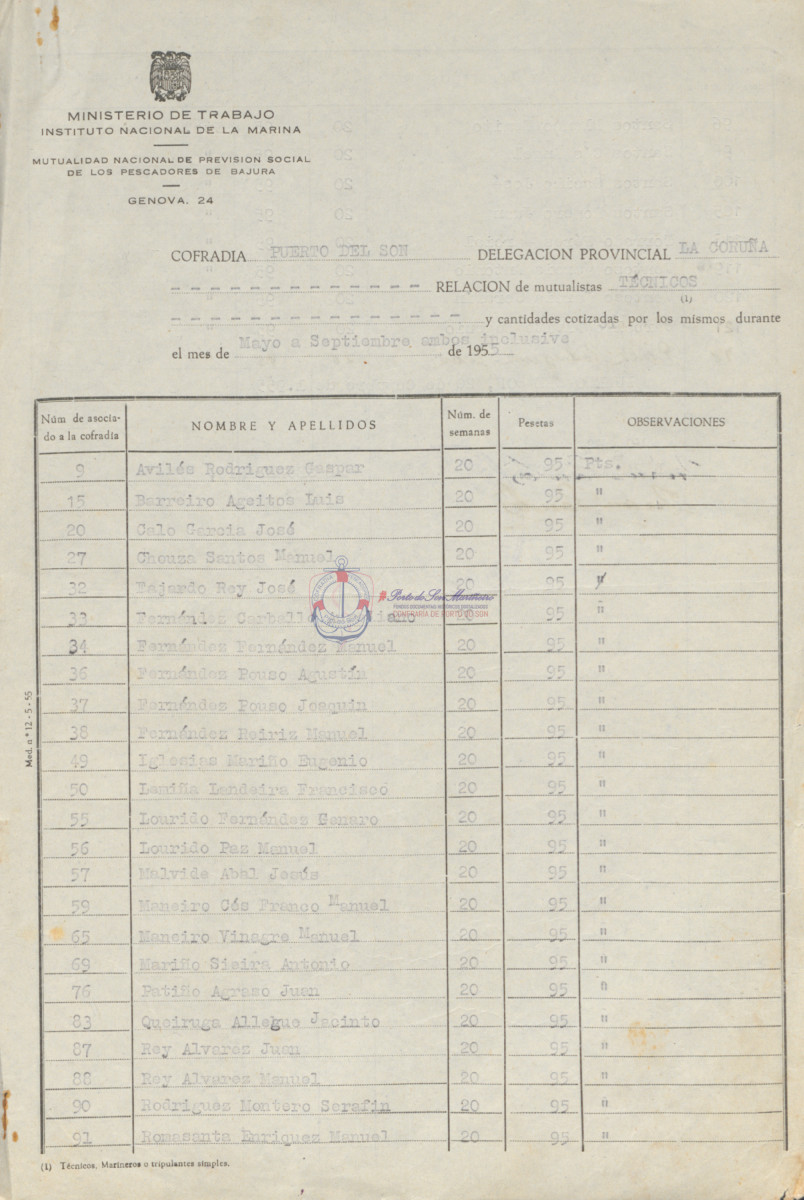 MINISTERIO DE TRABAJO
INSTITUTO NACIONAL DE LA MARINA
MUTUALIDAD NACIONAL DE PREVISION SOCIAL
DE LOS PESCADORES DE BAJURA
GENOVA, 24
COFRADIA PUERTO DEL SON DELEGACION PROVINCIAL LA CORUÑA
RELACION de mutualistas TÉCNICOS
(1)
y cantidades cotizadas por los mismos durante
el mes de Mayo a Septiembre ambos inclusive de 1955
Núm de asocia- NOMBRE Y APELLIDOS Núm. de Pesetas OBSERVACIONES
do a la cofradía semanas
9 Avilés Rodriguez Gaspar 20 95 Pts.
15 Barreiro Ageitos Luis 20 95 "
20 Calo Garcia José 20 95 "
27 Chouza Santos Manuel 20 95 "
32 Fajardo Rey José 20 95 "
33 Fernández 20 95 "
34 Fernández Fernández Manuel 20 95 "
36 Fernández Pouso Agustín 20 95 "
37 Fernández Pouso Joaquin 20 95 "
38 Fernández Reiriz Manuel 20 95 "
49 Iglesias Mariño Eugenio 20 95 "
50 Lamiña Landeira Francisco 20 95 "
55 Lourido Fernández Genaro 20 95 "
56 Lourido Paz Manuel 20 95 "
57 Malvide Abal Jesús 20 95 "
59 Maneiro Cés Franco Manuel 20 95 "
65 Maneiro Vinagre Manuel 20 95 "
69 Mariño Sieira Antonio 20 95 "
76 Patiño Agraso Juan 20 95 "
83 Queiruga Allegue Jacinto 20 95 "
87 Rey Alvarez Juan 20 95 "
88 Rey Alvarez Manuel 20 95 "
90 Rodriguez Montero Serafin 20 95 "
91 Romasanta Enriquez Manuel 20 95 "
(1) Técnicos, Marineros o tripulantes simples.
Mod. n.º 12 - 5 - 55
Porto do Son Marítimo
CONFRARÍA DE PORTO DO SON